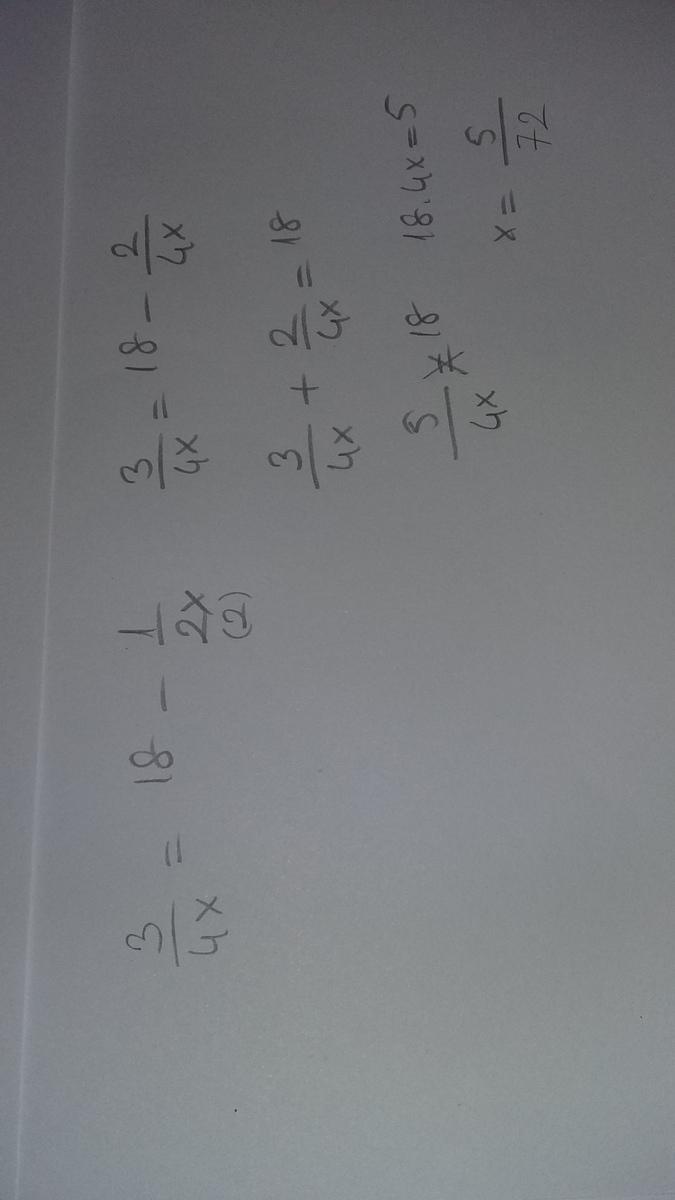 3/4x = 18 - 1/2x (2)
3/4x = 18 - 2/4x
3/4x + 2/4x = 18
5/4x = 18
18.4x=5
x = 5/72